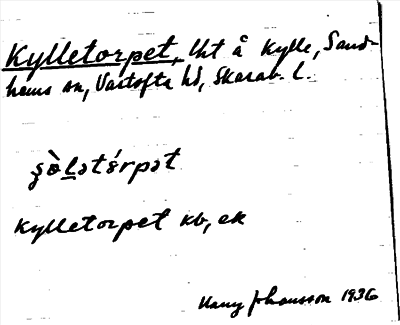 Kylletorpet, lht å Kylle, Sand-
hems sn, Vartofta hd, Skarab. l.
Kylletorpet kb, ek
Harry Johansson 1936